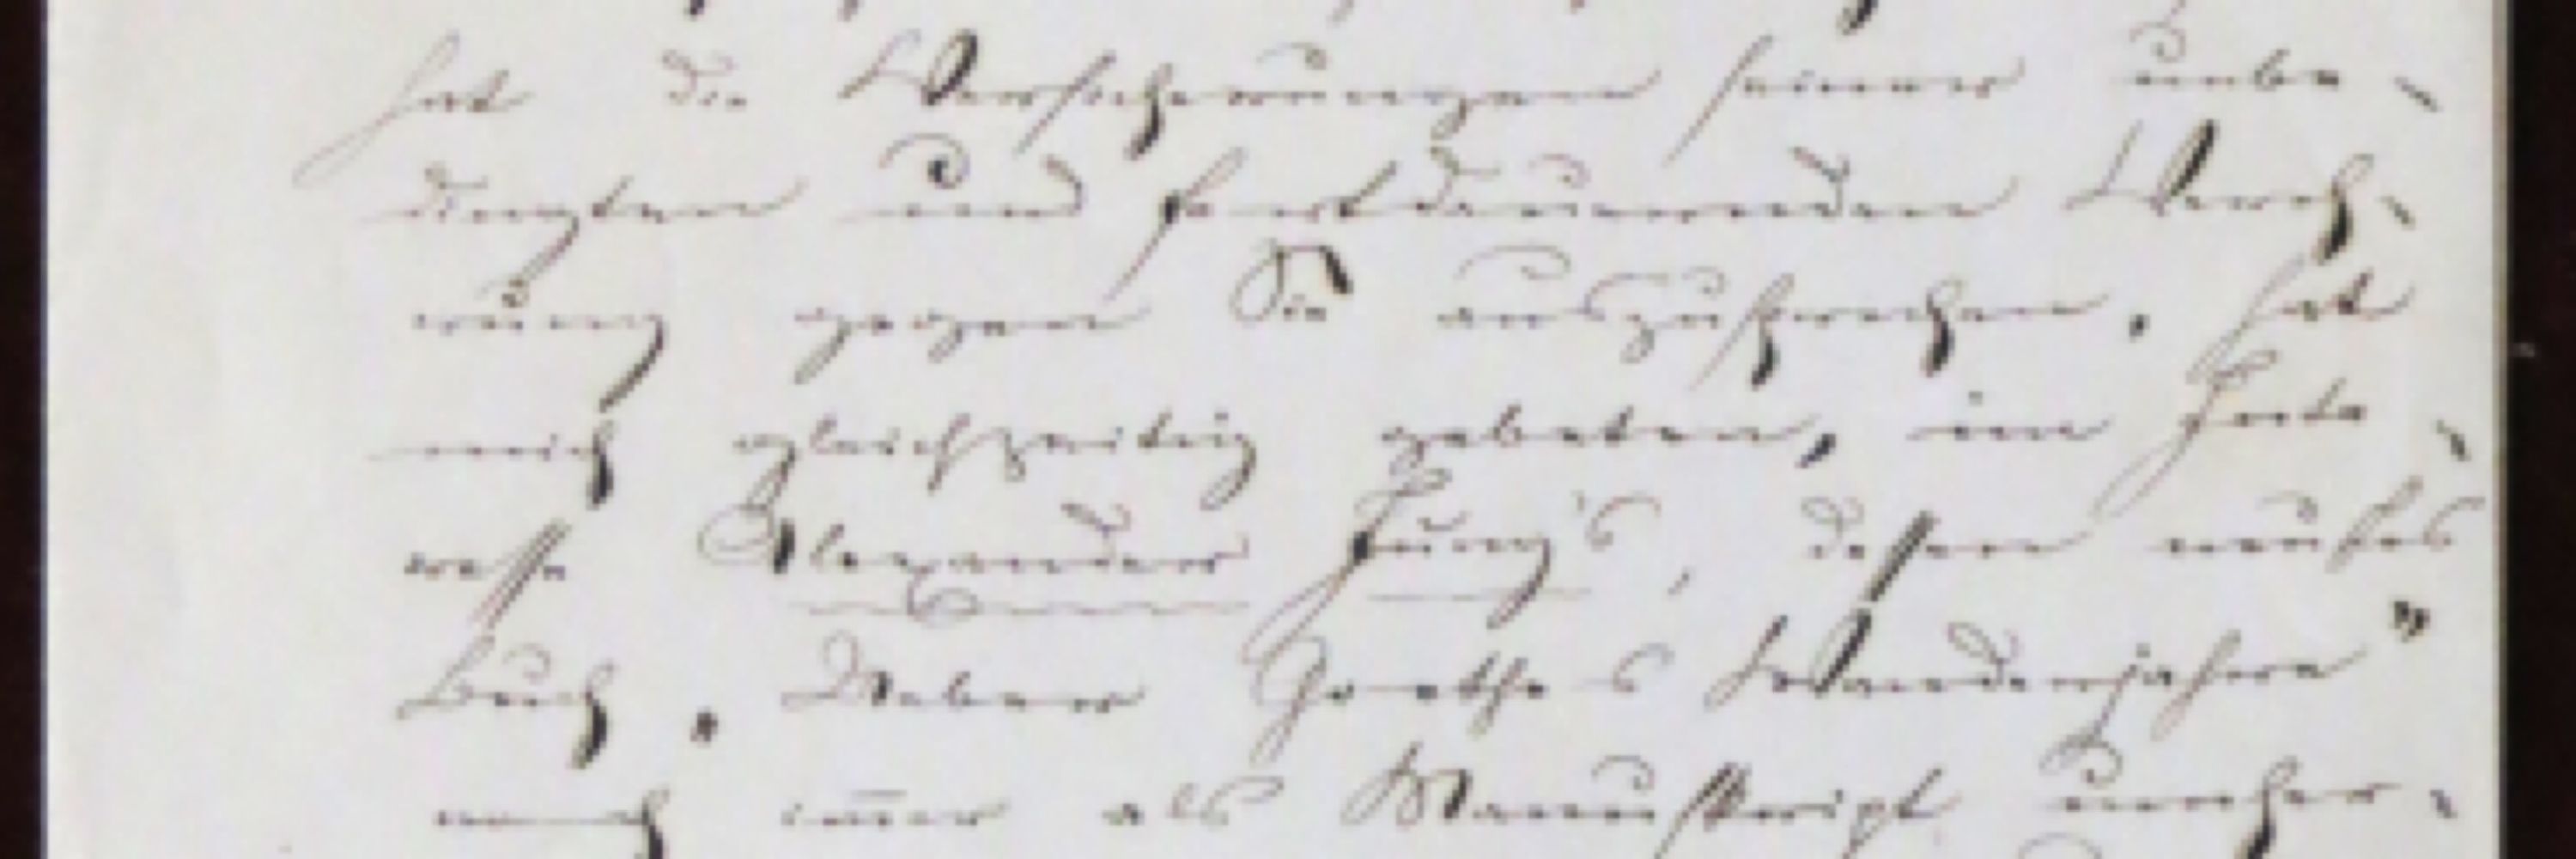 hat die Versicherungen seiner unbe-
dingten und fortdauernden Vereh-
rung gegen Sie auszusprechen. hat
mich gleichzeitig gebeten, im Inte-
resse Alexander Jung's, dessen neuestes
Buch. Ueber Goethe's Wanderjahre"
noch immer als Manuskript umher-